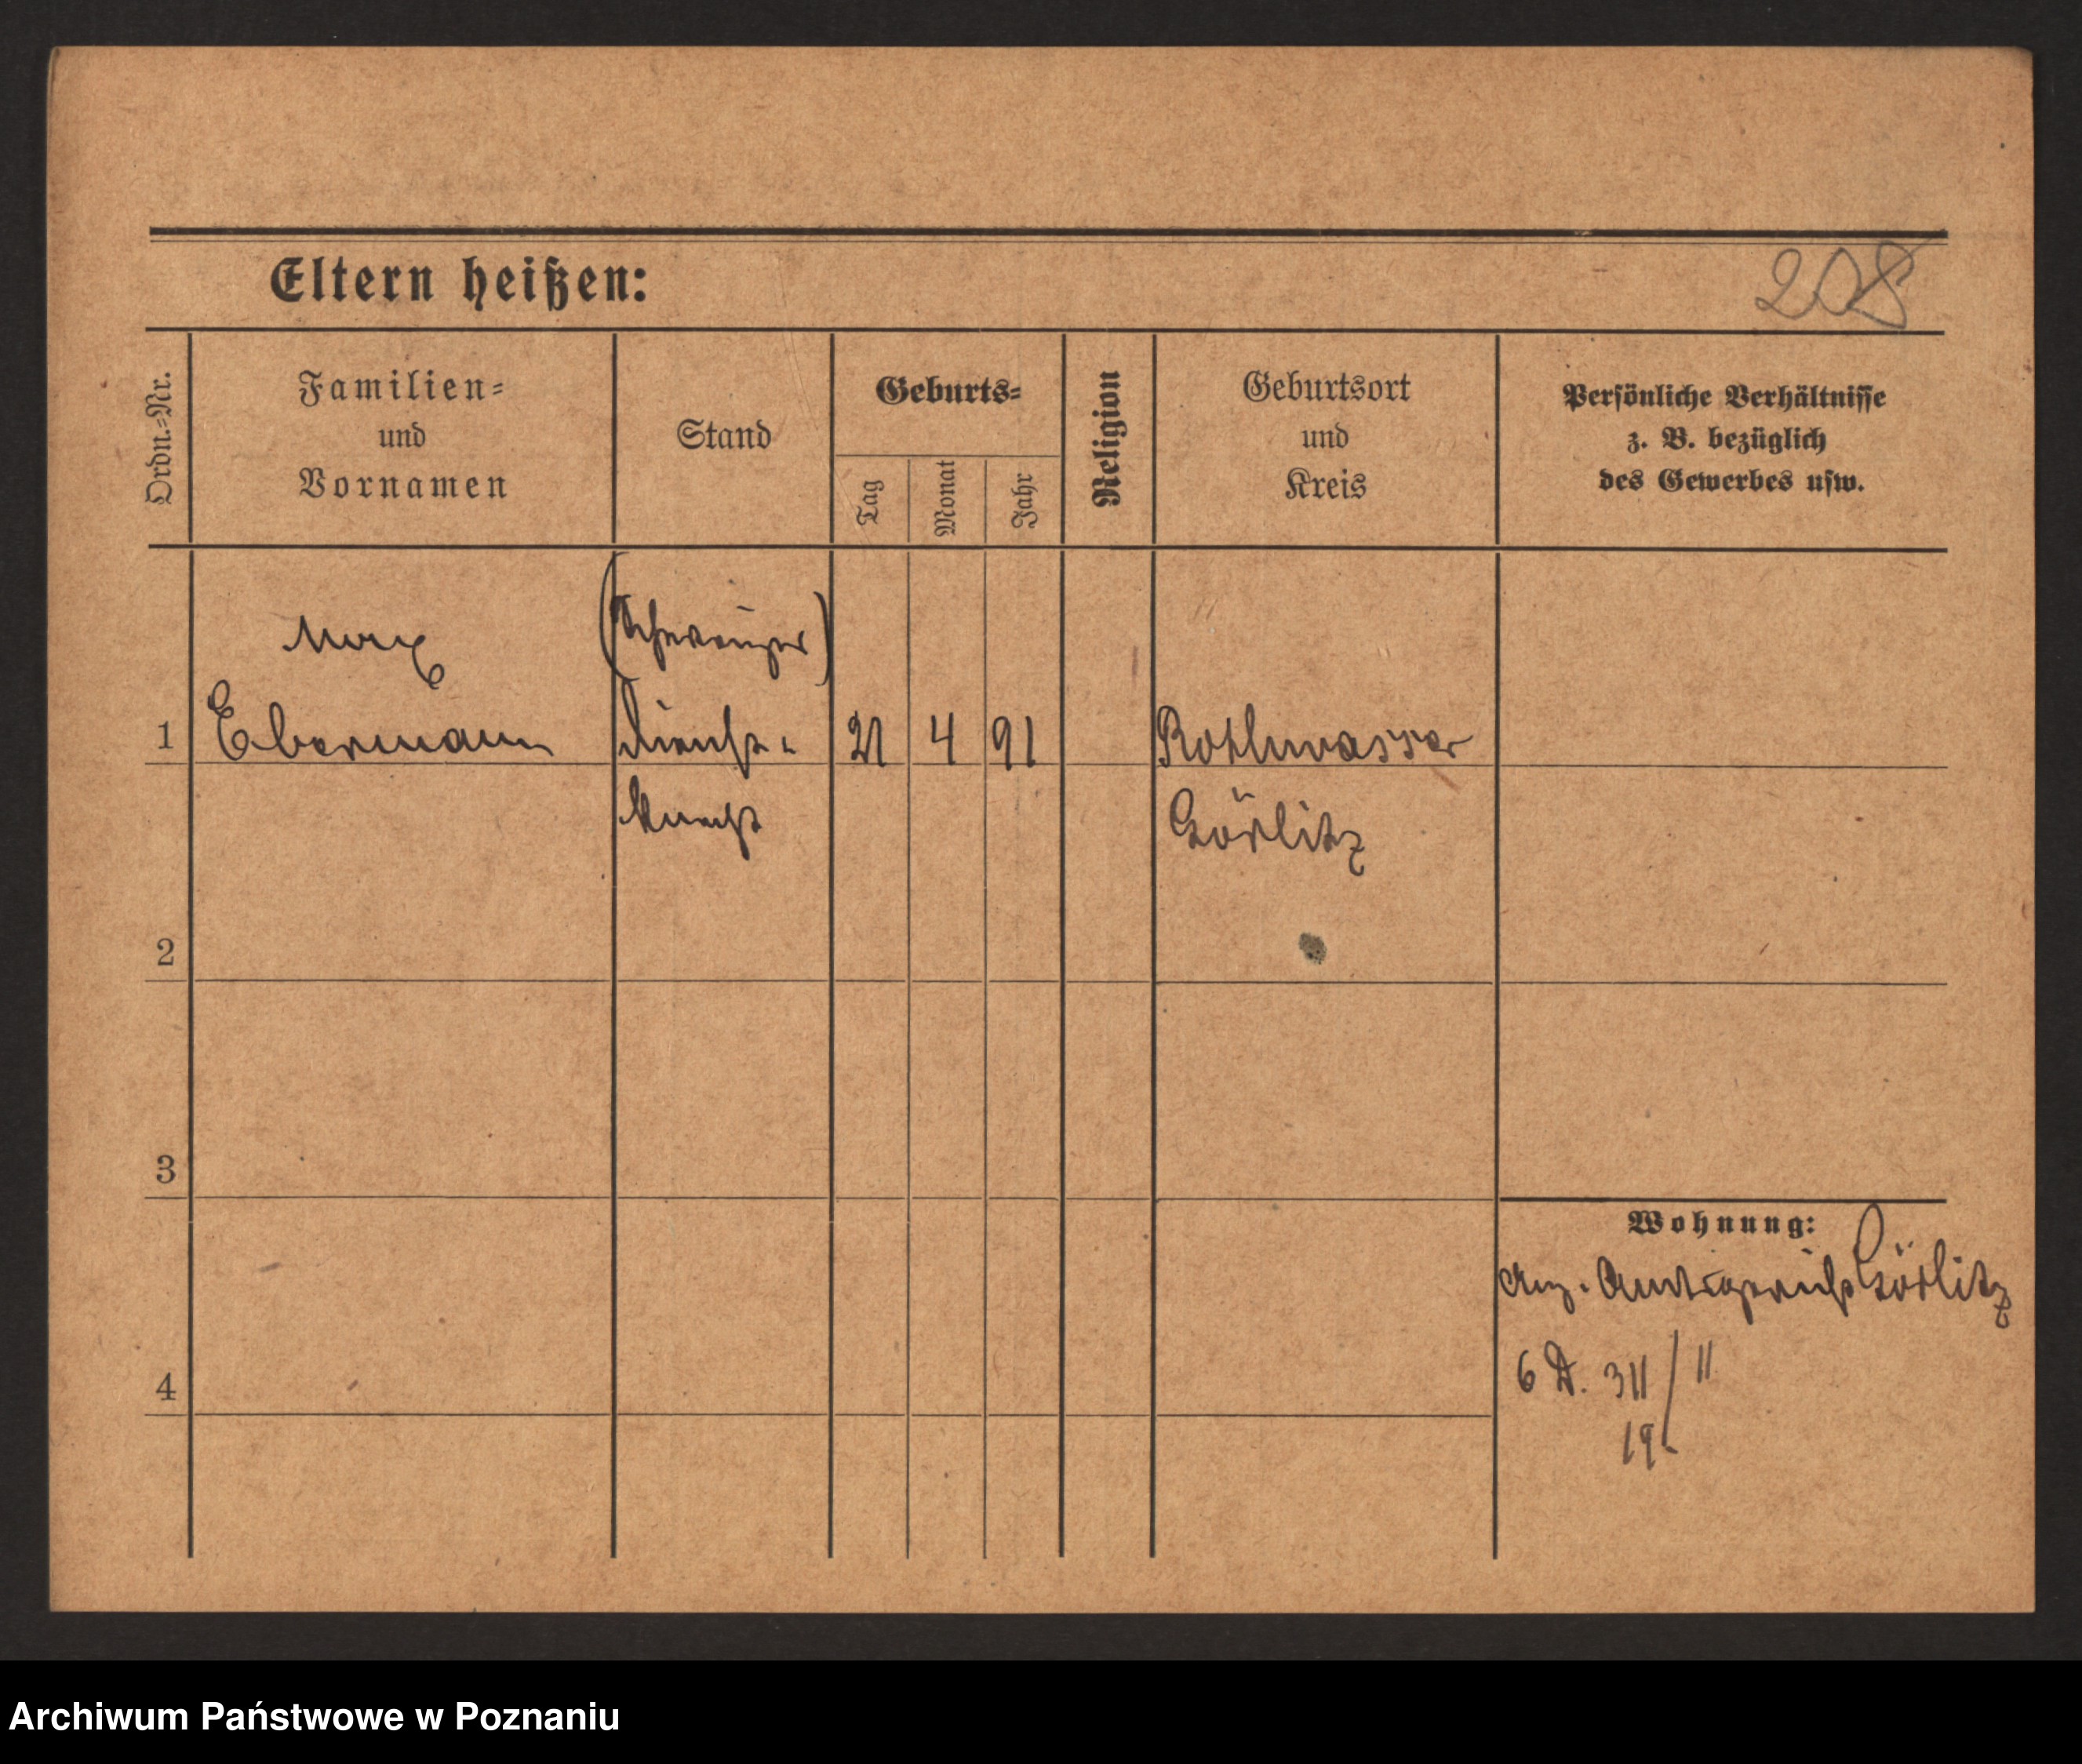 Eltern heißen:
208
Ordn.-Nr.
Familien-
und
Vornamen
Stand
Geburts-
Tag
Monat
Jahr
Religion
Geburtsort
und
Kreis
Persönliche Verhältnisse
z. B. bezüglich
des Gewerbes usw.
Max
1 Ebermann Dienst- 21 4 91 Rothwasser
knecht Görlitz
2
3
4
Wohnung:
Amtsgericht Görlitz
6 D. 311/11
19
Archiwum Państwowe w Poznaniu